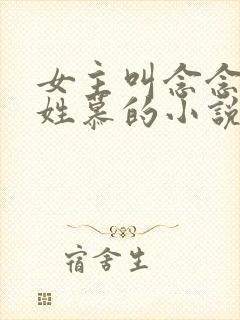 女主叫念念
姓慕的小說
宿舍生